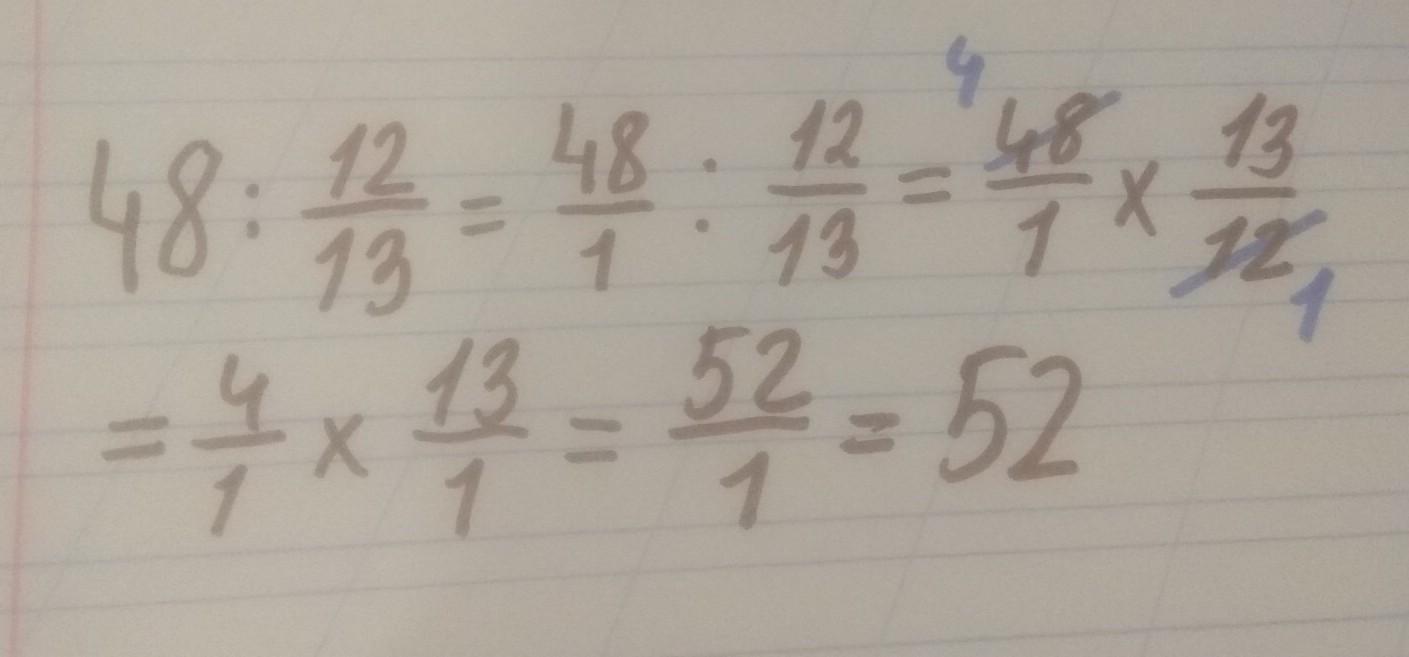 48 : 12/13 = 48/1 : 12/13 = 4 48/1 x 13/12 1
= 4/1 x 13/1 = 52/1 = 52